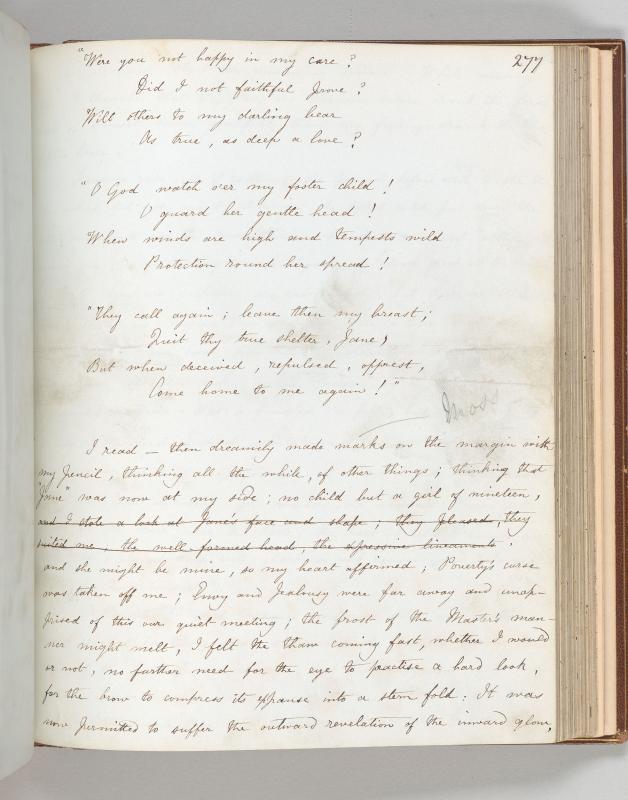 277
"Were you not happy in my care?
Did I not faithful prove?
Will others to my darling bear
As true, as deep a love?
"O God watch o'er my foster child!
O guard her gentle head!
When winds are high and tempests wild
Protection round her spread!
"They call again; leave then my breast;
Quit thy true shelter, Jane,
But when deceived, repulsed, opprest,
Come home to me again!"
Moss
I read — then dreamily made marks on the margin with
my pencil, thinking all the while, of other things; thinking that
"Jane" was now at my side; no child but a girl of nineteen,
and I stole a look at Jane's face and shape; they pleased, they
suited me; the well-formed head, the expressive lineaments
and she might be mine, so my heart affirmed; Poverty's curse
was taken off me; Envy and Jealousy were far away and unap-
prised of this our quiet meeting; the frost of the Master's man-
ner might melt, I felt the thaw coming fast, whether I would
or not, no further need for the eye to practise a hard look,
for the brow to compress its expanse into a stern fold: It was
now permitted to suffer the outward revelation of the inward glow,